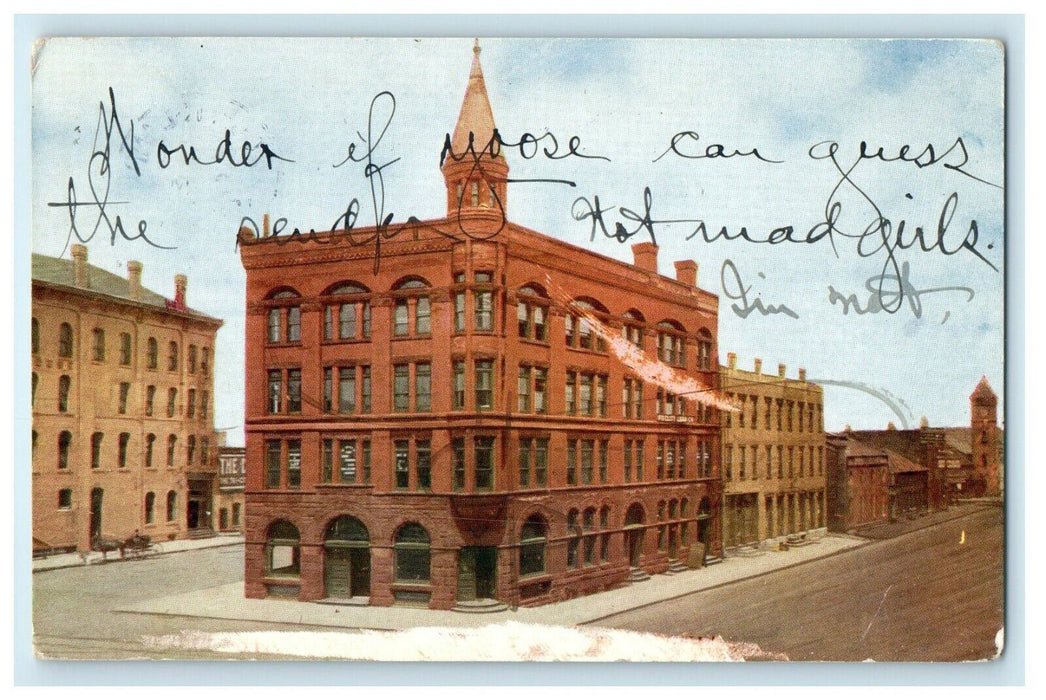 Wonder if yoose can guess
the sender? Not mad girls.
I'm not,
THE D